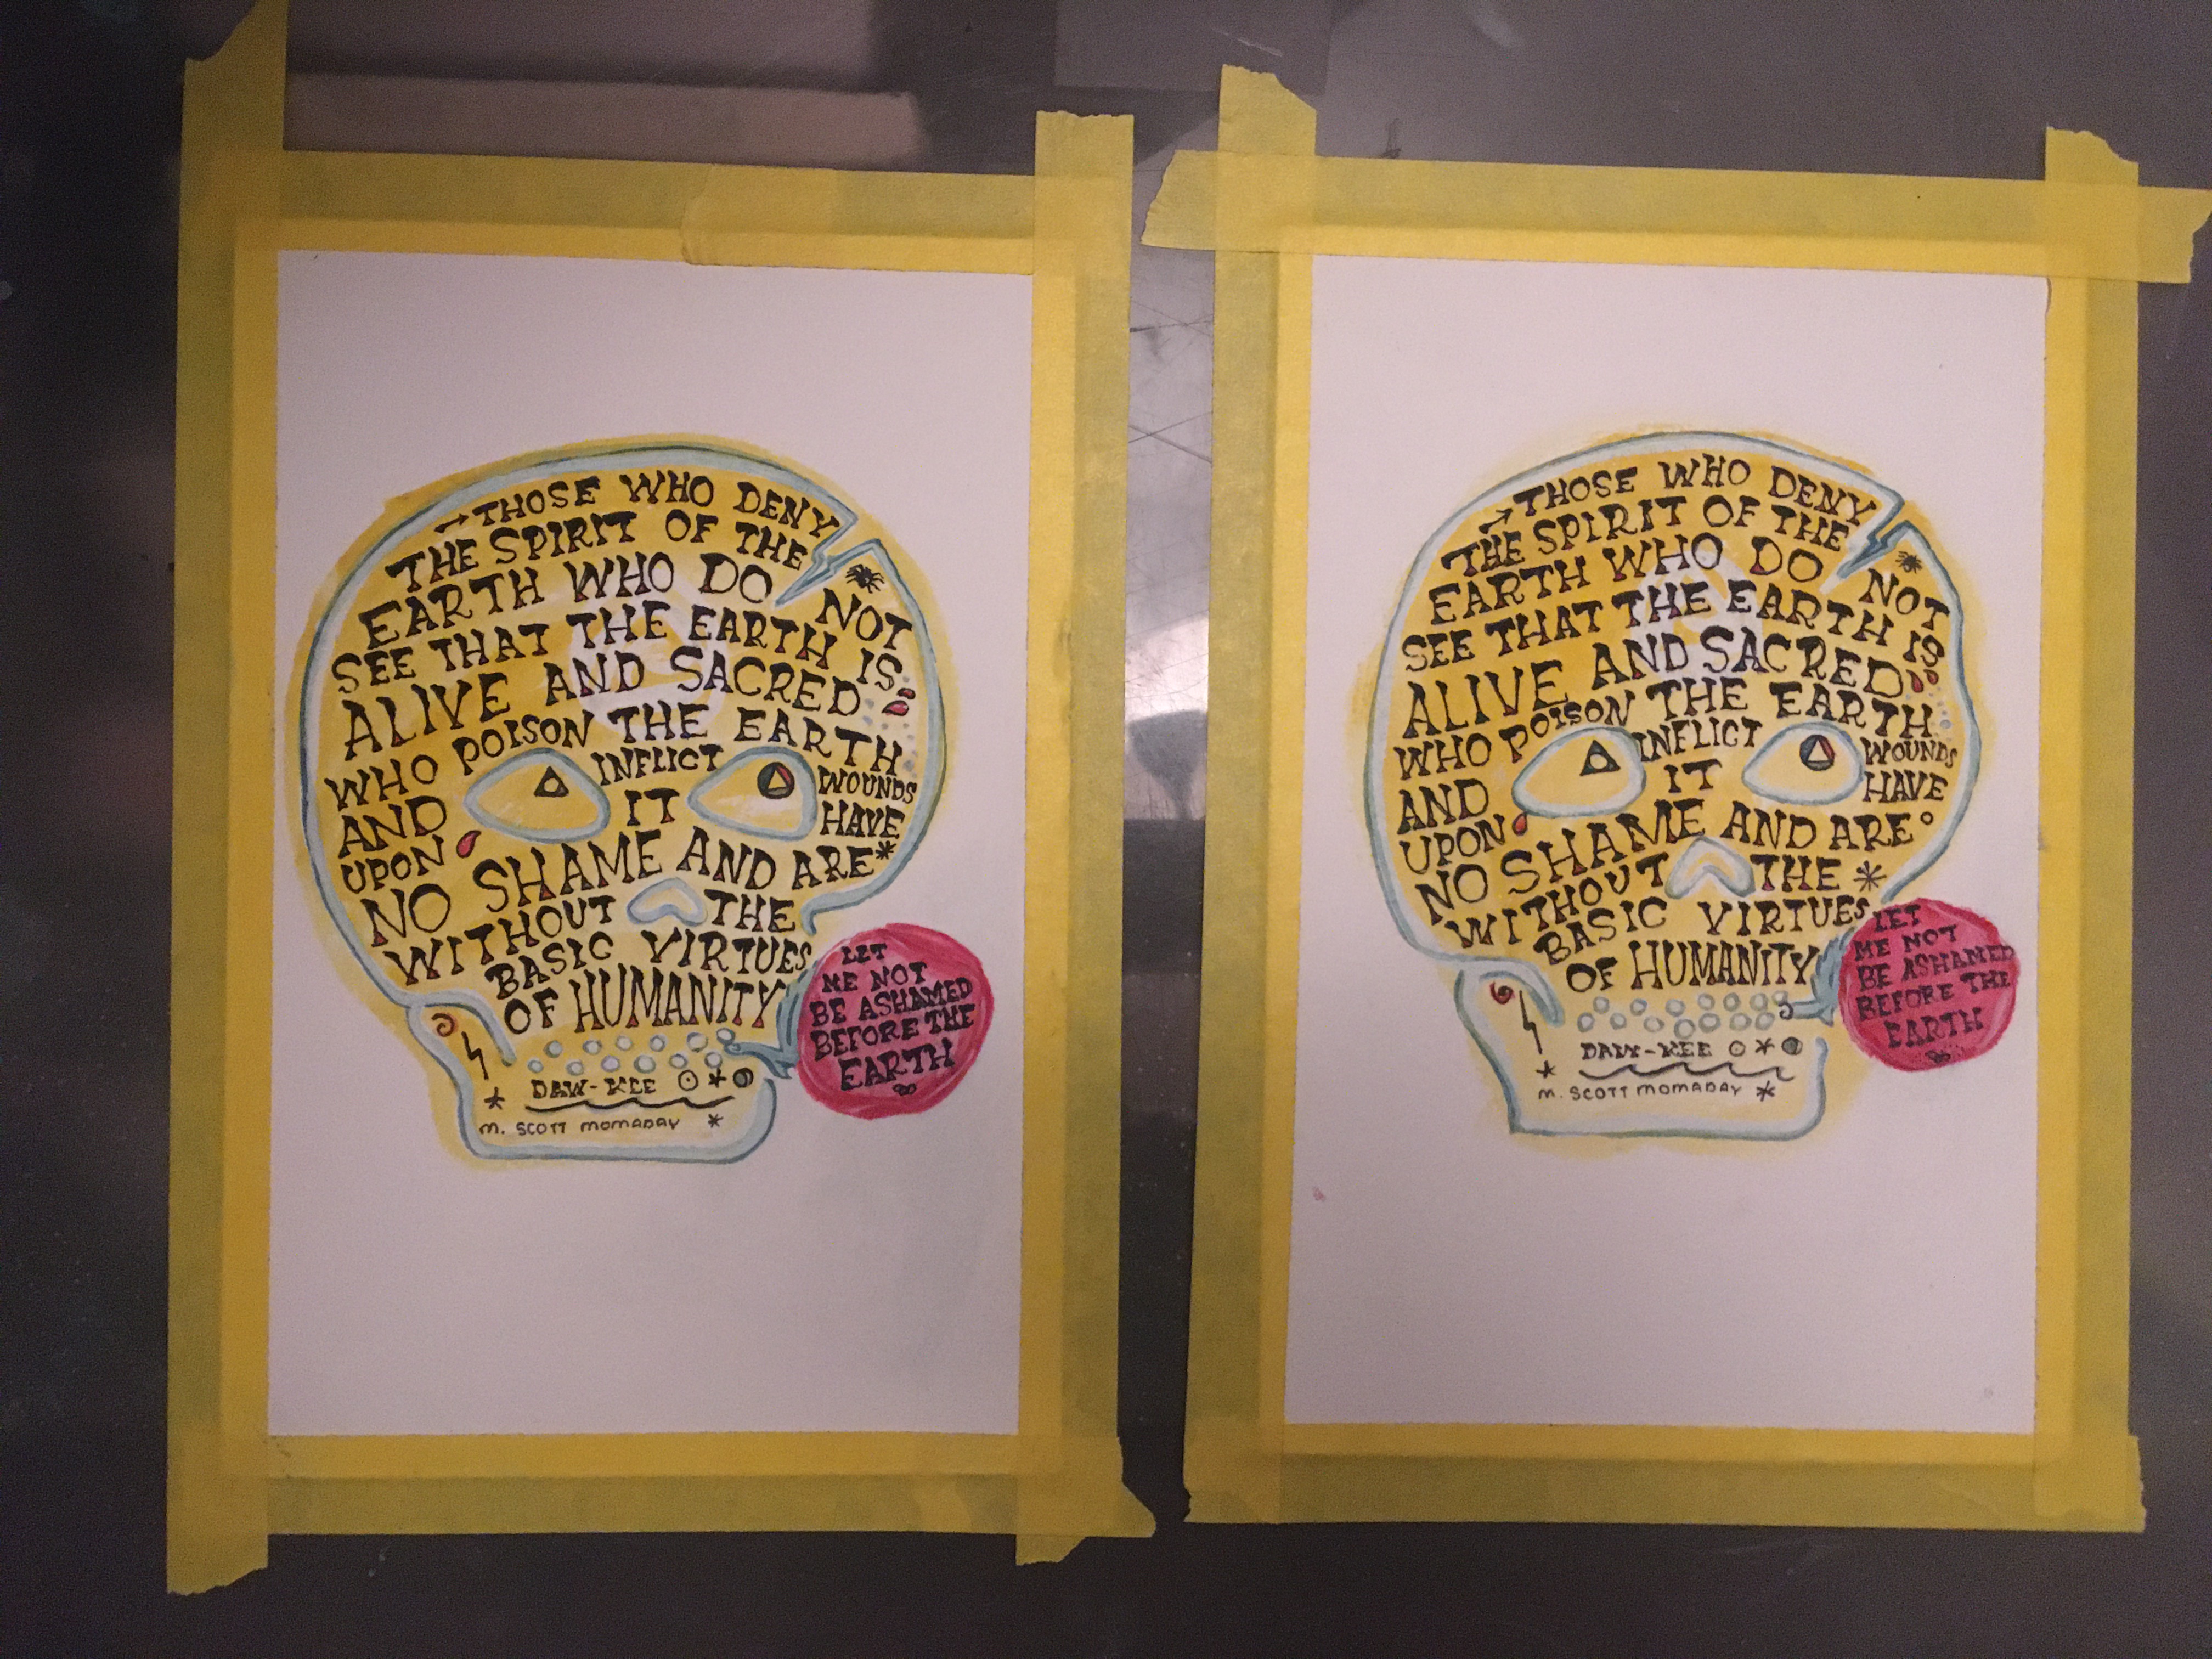 THOSE WHO DENY
THE SPIRIT OF THE
EARTH WHO DO NOT
SEE THAT THE EARTH IS
ALIVE AND SACRED
WHO POISON THE EARTH
AND INFLICT WOUNDS
UPON IT HAVE
NO SHAME AND ARE*
WITHOUT THE
BASIC VIRTUES
OF HUMANITY
LET
ME NOT
BE ASHAMED
BEFORE THE
EARTH
DAW-KEE
M. SCOTT MOMADAY *
THOSE WHO DENY
THE SPIRIT OF THE
EARTH WHO DO NOT
SEE THAT THE EARTH IS
ALIVE AND SACRED
WHO POISON THE EARTH
AND INFLICT WOUNDS
UPON IT HAVE
NO SHAME AND ARE
WITHOUT THE *
BASIC VIRTUES
OF HUMANITY
LET
ME NOT
BE ASHAMED
BEFORE THE
EARTH
DAW-KEE
M. SCOTT MOMADAY *